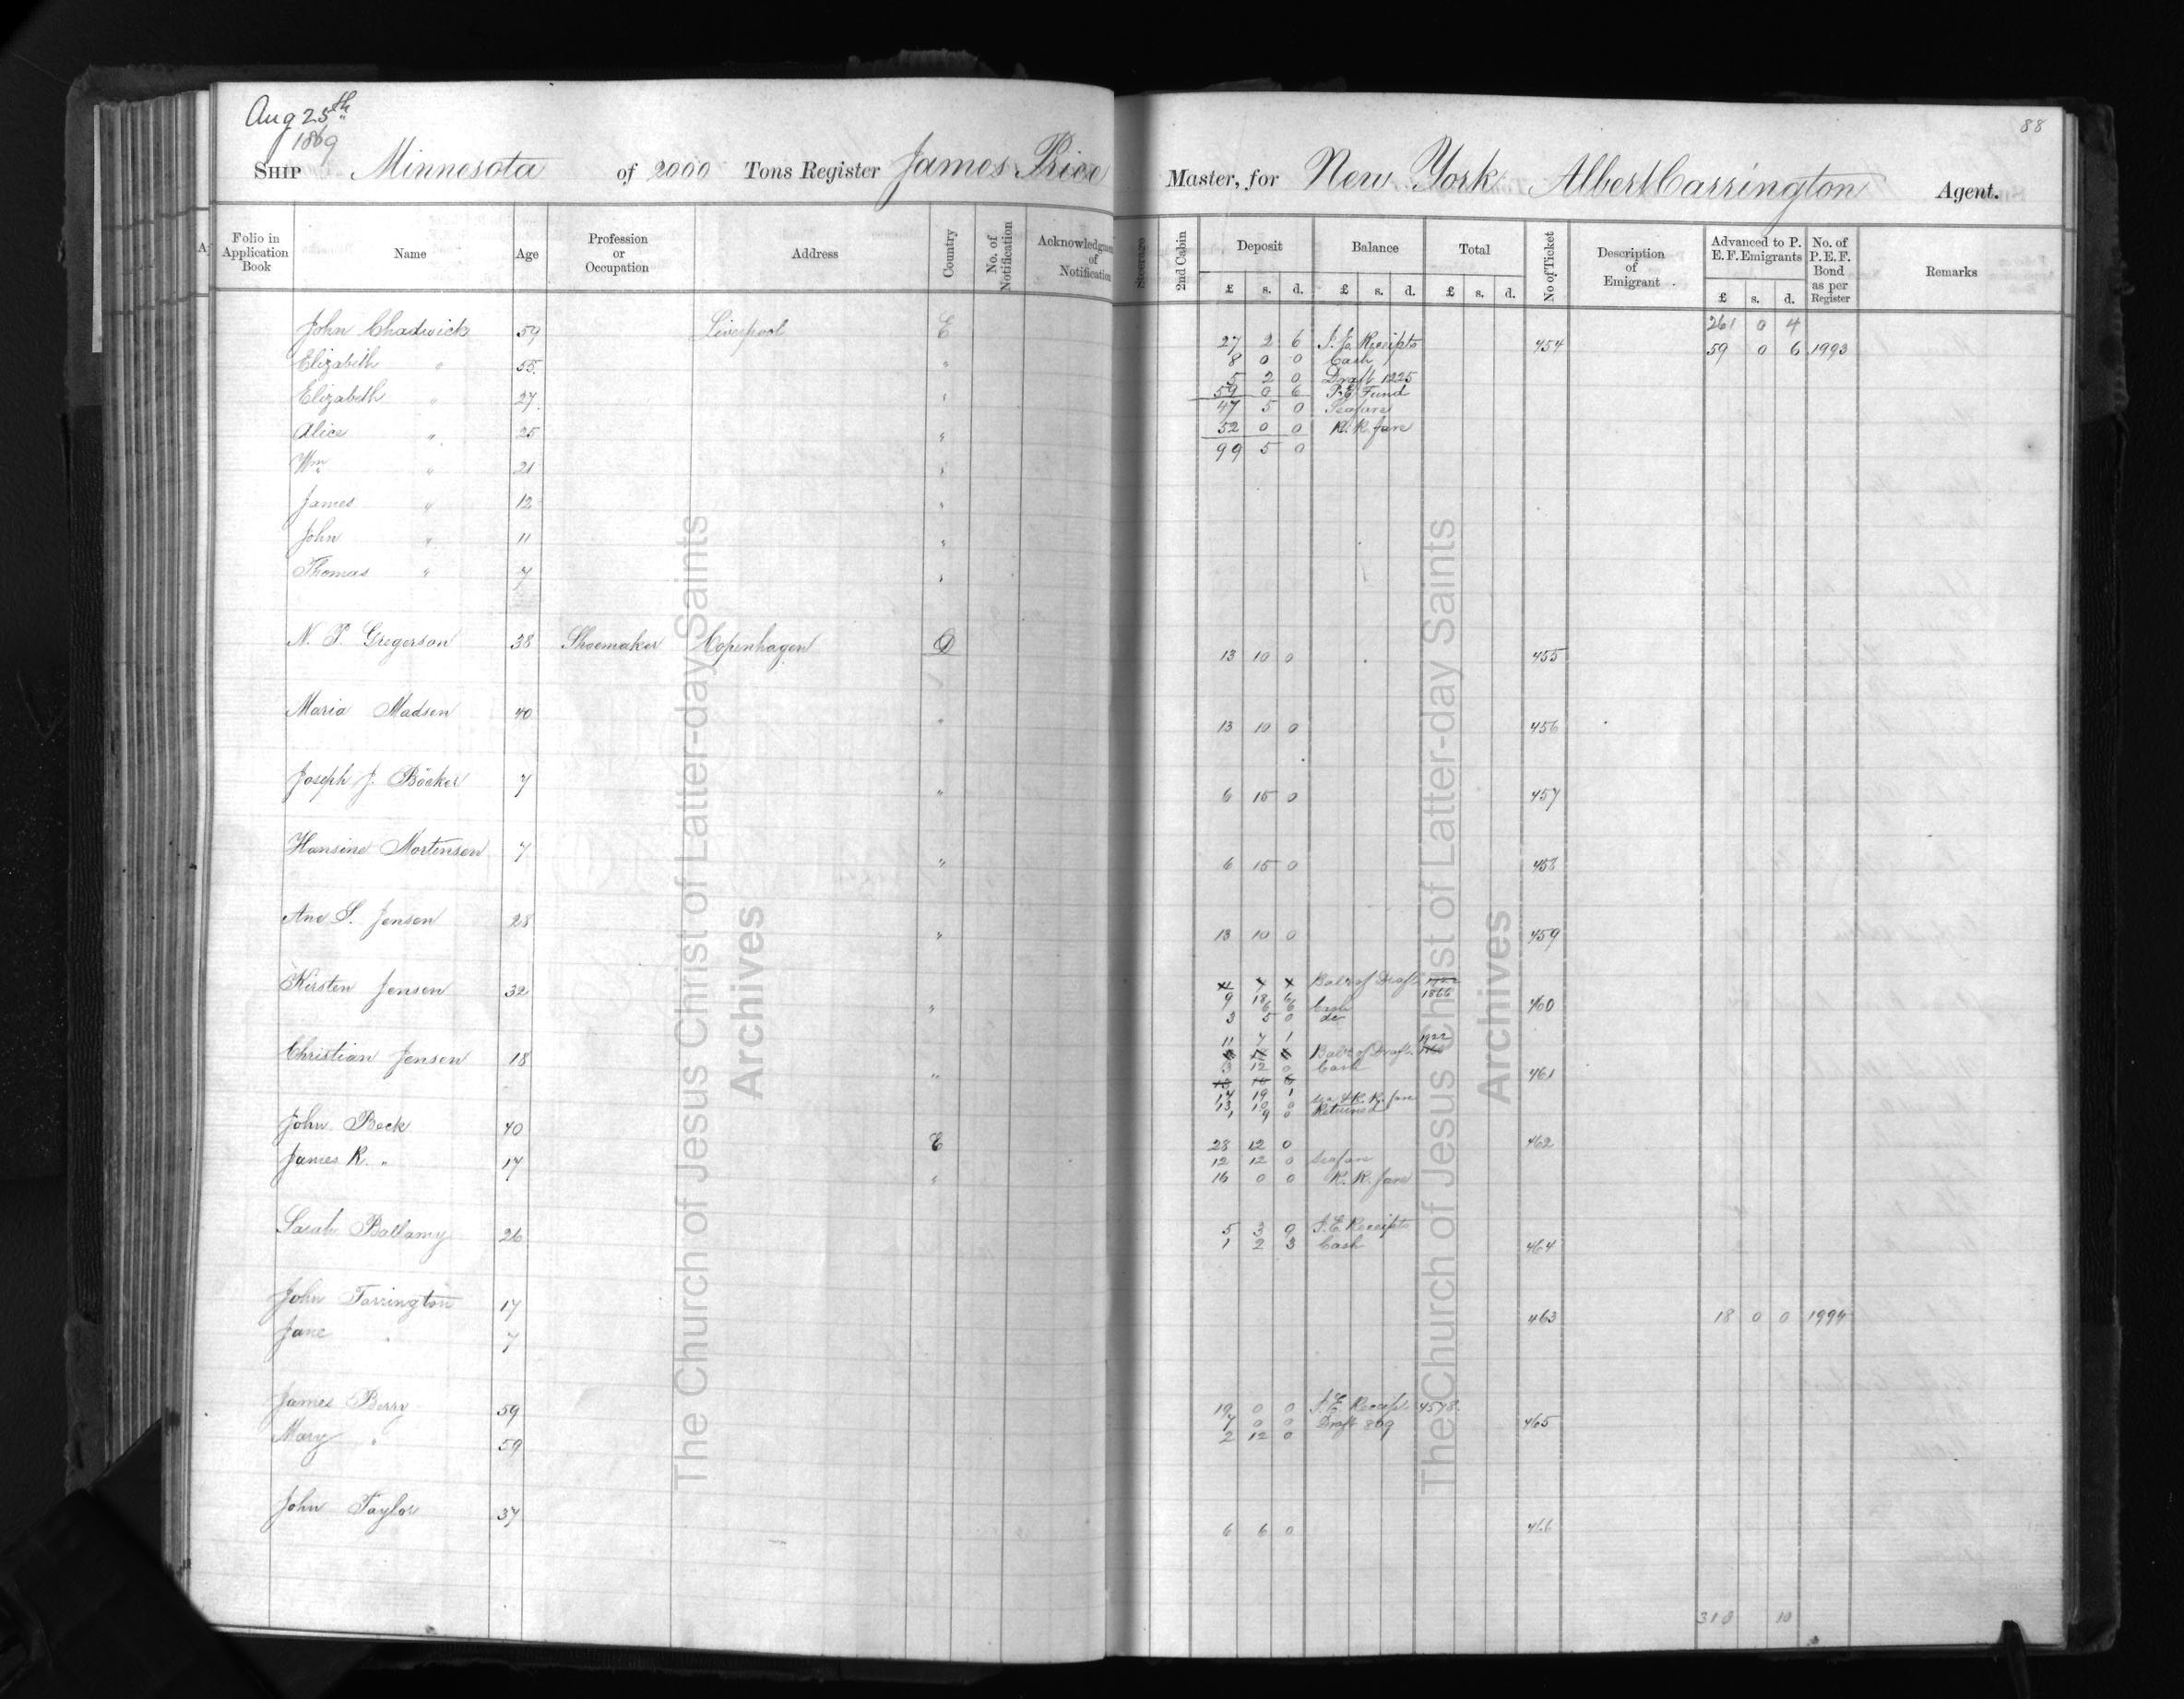 Aug 25th
1869
88
SHIP Minnesota of 2000 Tons Register James Price Master, for New York Albert Carrington Agent.
Folio in Application Book Name Age Profession or Occupation Address Country No. of Notification Acknowledgment of Notification Steerage 2nd Cabin Deposit £ s. d. Balance £ s. d. Total £ s. d. No of Ticket Description of Emigrant Advanced to P. E. F. Emigrants £ s. d. No. of P. E. F. Bond as per Register Remarks
261 0 4
John Chadwick 59 Liverpool E 27 2 6 I. E. Receipts 454 59 0 6 1993
Elizabeth " 55 " 8 0 0 Cash
5 2 0 Draft 1225
Elizabeth " 27 " 59 0 6 P. E. Fund
47 5 0 Seafare
Alice " 25 " 52 0 0 R. R. fare
99 5 0
Wm " 21 "
James " 12 "
John " 11 "
Thomas " 7 "
N. P. Gregerson 38 Shoemaker Copenhagen D 13 10 0 455
Maria Madsen 40 " 13 10 0 456
Joseph J. Böcker 7 " 6 15 0 457
Hansine Mortensen 7 " 6 15 0 458
Ane S. Jensen 28 " 13 10 0 459
Kirsten Jensen 32 " Balce of Draft
9 18 6 1866
6 6 Cash 460
3 5 0 do
11 7 1 1922
Christian Jensen 18 " Balce of Draft
3 12 0 Cash 461
14 19 1
13 10 0 sea & R. R. fare
1 9 0 Returned
John Beck 40 E 28 12 0 462
James R. " 17 " 12 12 0 seafare
16 0 0 R. R. fare
Sarah Ballamy 26 5 3 9 I. E. Receipts
1 2 3 Cash 464
John Tarrington 17 463 18 0 0 1994
Jane " 7
James Berry 59 19 0 0 I. E. Receipt 4578
7 0 0 Draft 869 465
Mary " 59 2 12 0
John Taylor 37 6 6 0 466
10
The Church of Jesus Christ of Latter-day Saints
Archives
The Church of Jesus Christ of Latter-day Saints
Archives